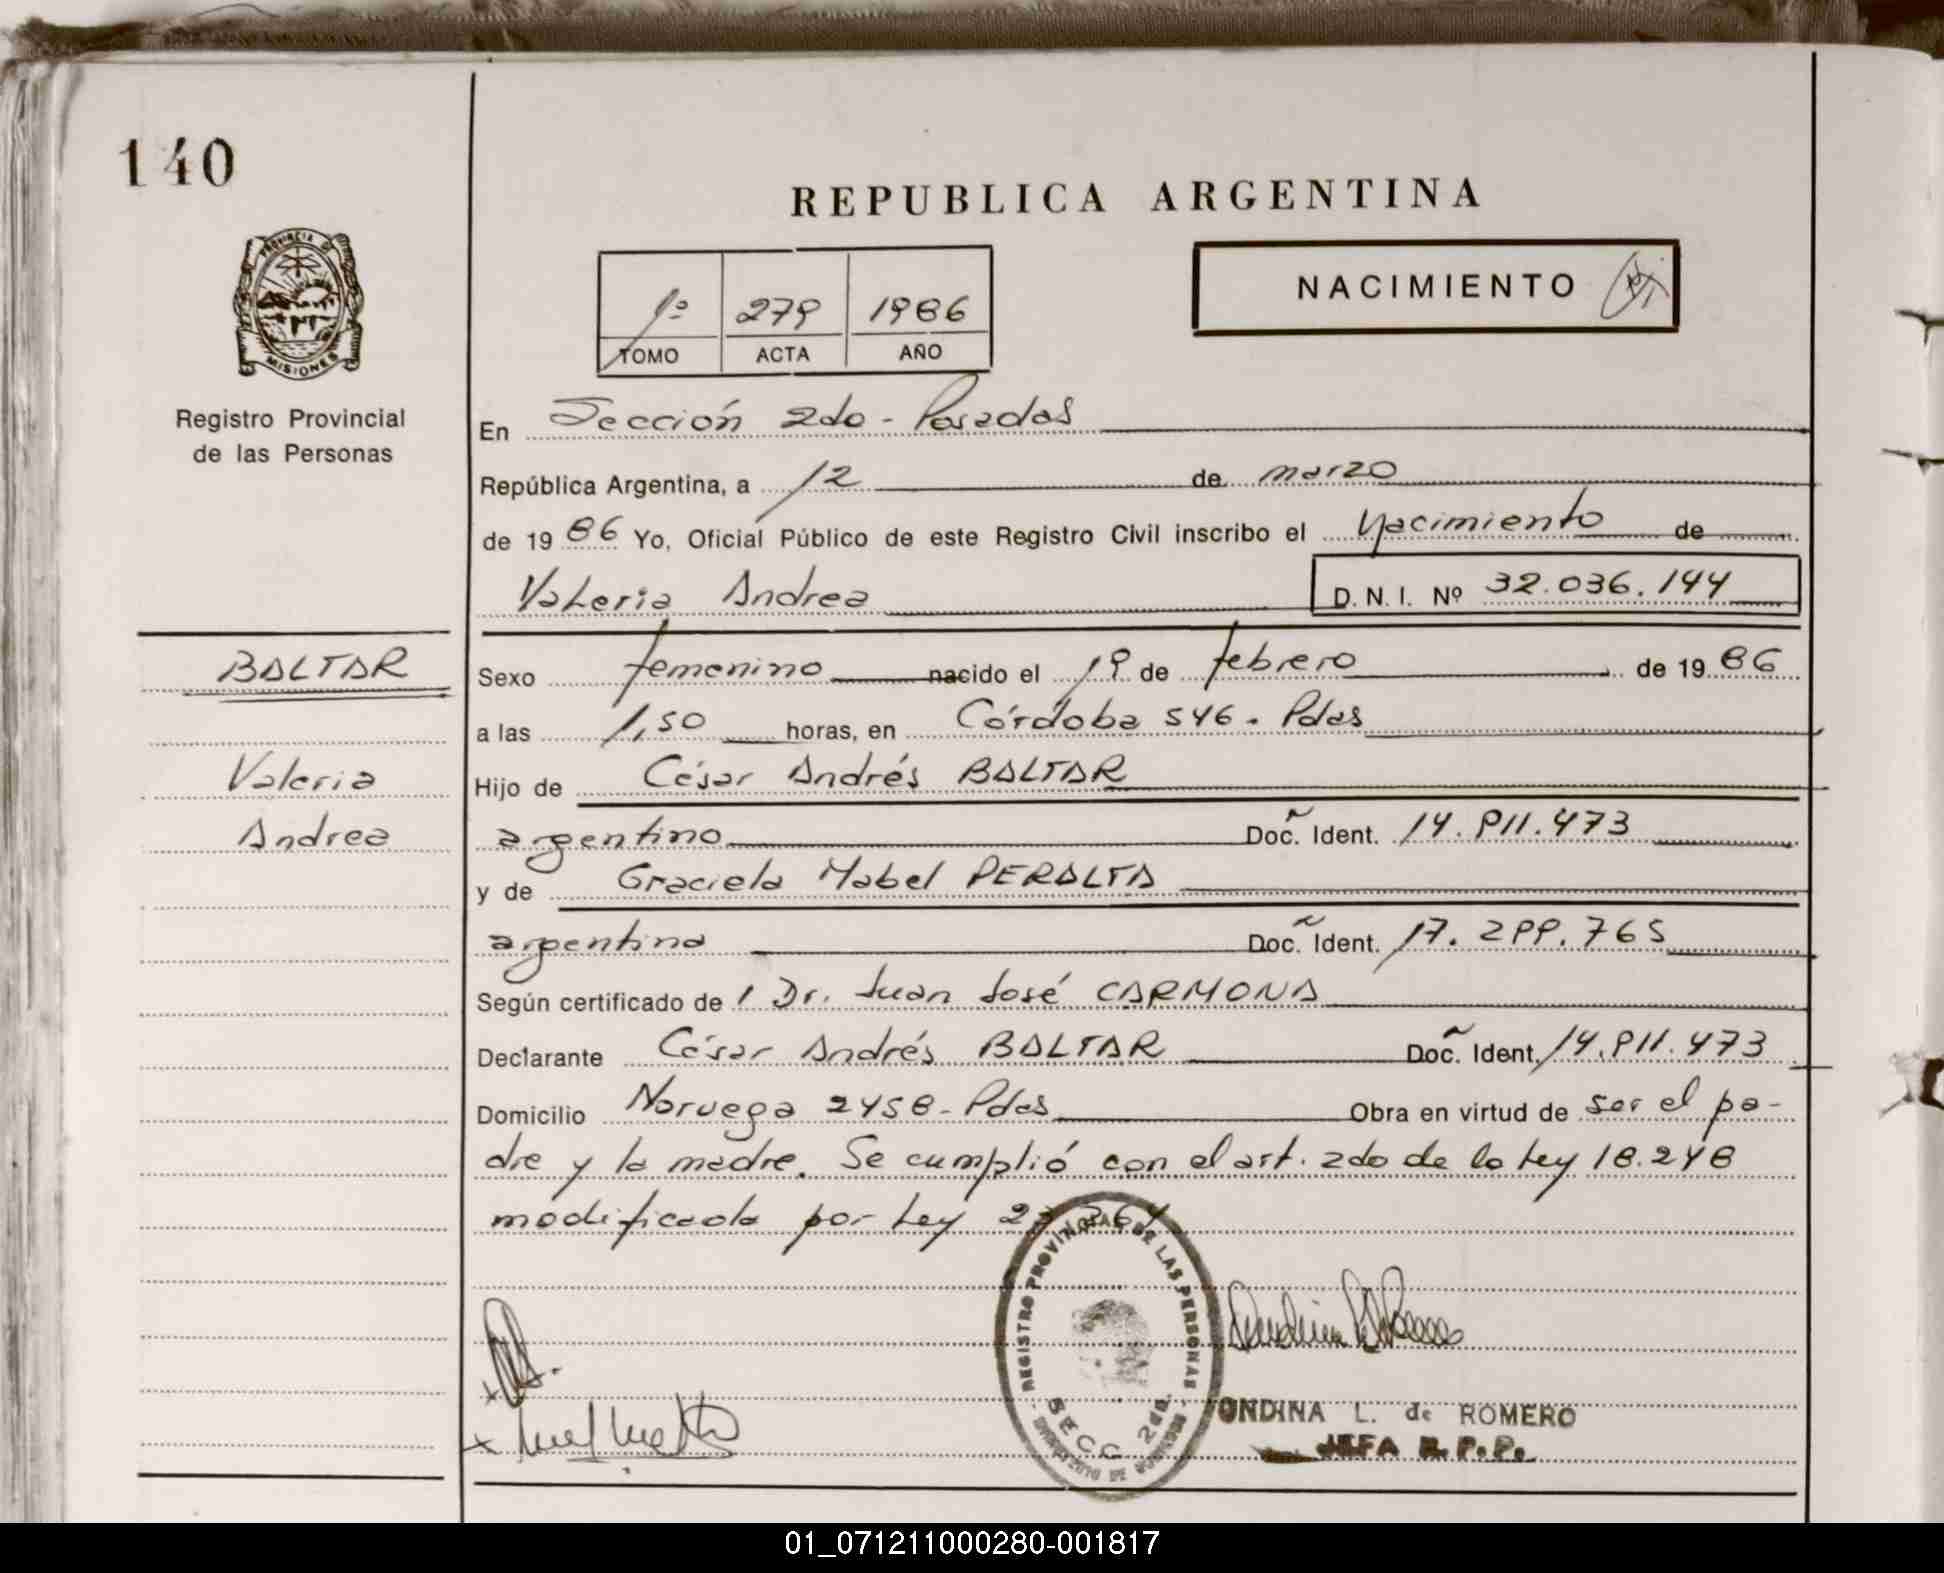 140
REPUBLICA ARGENTINA
PROVINCIA DE
MISIONES
1º 279 1986
TOMO ACTA AÑO
NACIMIENTO
Registro Provincial
de las Personas
En Sección 2da - Posadas
República Argentina, a 12 de marzo
de 1986 Yo, Oficial Público de este Registro Civil inscribo el Nacimiento de
Valeria Andrea D. N. I. Nº 32.036.144
BALTAR
Valeria
Andrea
Sexo femenino nacido el 19 de febrero de 1986
a las 1,50 horas, en Córdoba 546 - Pdas
Hijo de César Andrés BALTAR
argentino Doc. Ident. 14.911.473
y de Graciela Mabel PERALTA
argentina Doc. Ident. 17.299.765
Según certificado de Dr. Juan José CARMONA
Declarante César Andrés BALTAR Doc. Ident. 14.911.473
Domicilio Noruega 2458 - Pdas Obra en virtud de ser el pa-
dre y la madre. Se cumplió con el art. 2do de la Ley 18.248
modificada por Ley 23.264
REGISTRO PROVINCIAL DE LAS PERSONAS
SECC 2da
ONDINA L. de ROMERO
JEFA R.P.P.
01_071211000280-001817